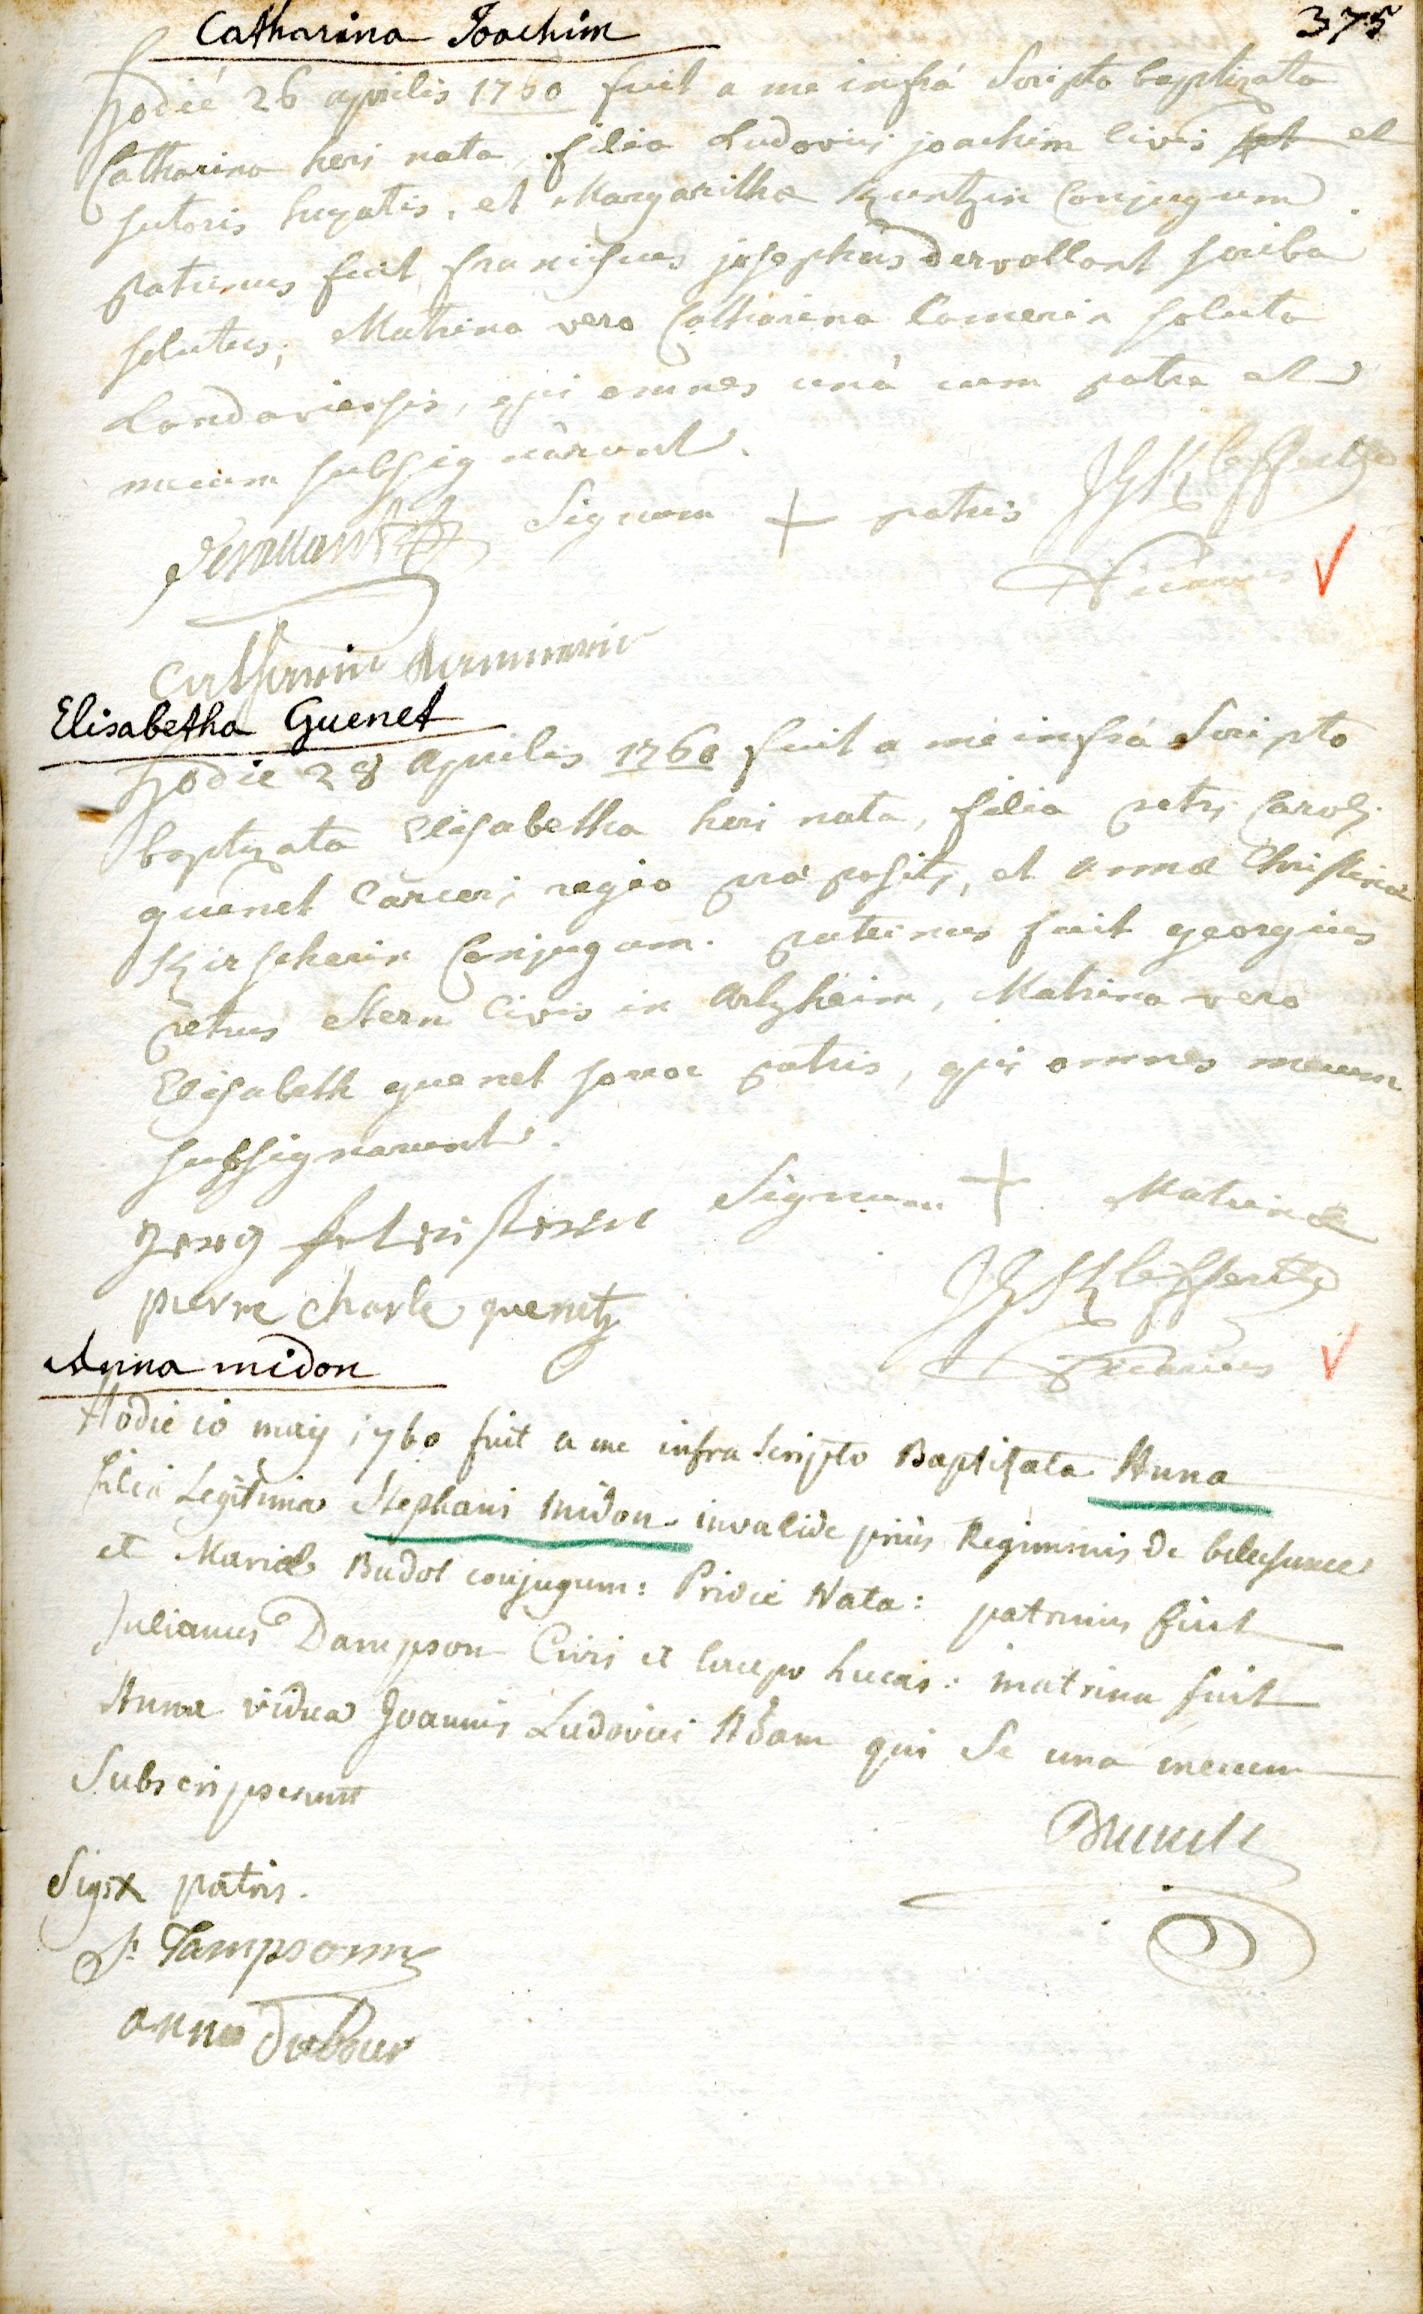 Catharina Joachim
375
hodie 26 aprilis 1760 fuit a me infrá Scripto baptizata
Catharina heri nata, filia Ludovici joachim civis et
sutoris hujatis, et Margarithæ Kuntzin Conjugum.
patrinus fuit franciscus josephus Dervallant scriba
solutus; Matrina vero Catharina Camerin soluta
Landaviensis, qui omnes unà cum patre et
mecum subsignârunt.
Signum + patris JGKleffertz
Dervallant
Vicarius
Catharin
Elisabetha Guenet
hodie 28 Aprilis 1760 fuit a me infrá Scripto
baptizata Elisabetha heri nata, filia petri Caroli
guenet Carceri regio præpositi, et annæ Christinæ
Kirscherin Conjugum. patrinus fuit georgius
petrus Stern Civis in Artzheim, Matrina vero
Elisabeth guenet soror patris, qui omnes mecum
subsignarunt.
Signum + Matrinæ
Jerg
pierre charle guenet
JGKleffertz
Vicarius
Anna midon
Hodie 10 maij 1760 fuit a me infra Scripto Baptizata Anna
filia Legitima Stephani midon invalide prius Regiminis de belsunce
et Mariæ Budot conjugum: Pridie Nata: patrinus fuit
Julianus Dampson Civis et hucais: matrina fuit
Anna vidua Joannis Ludovici Adam qui se una mecum
Subscripserunt
Sig x patris.
J. Tampsonn
anne dubour